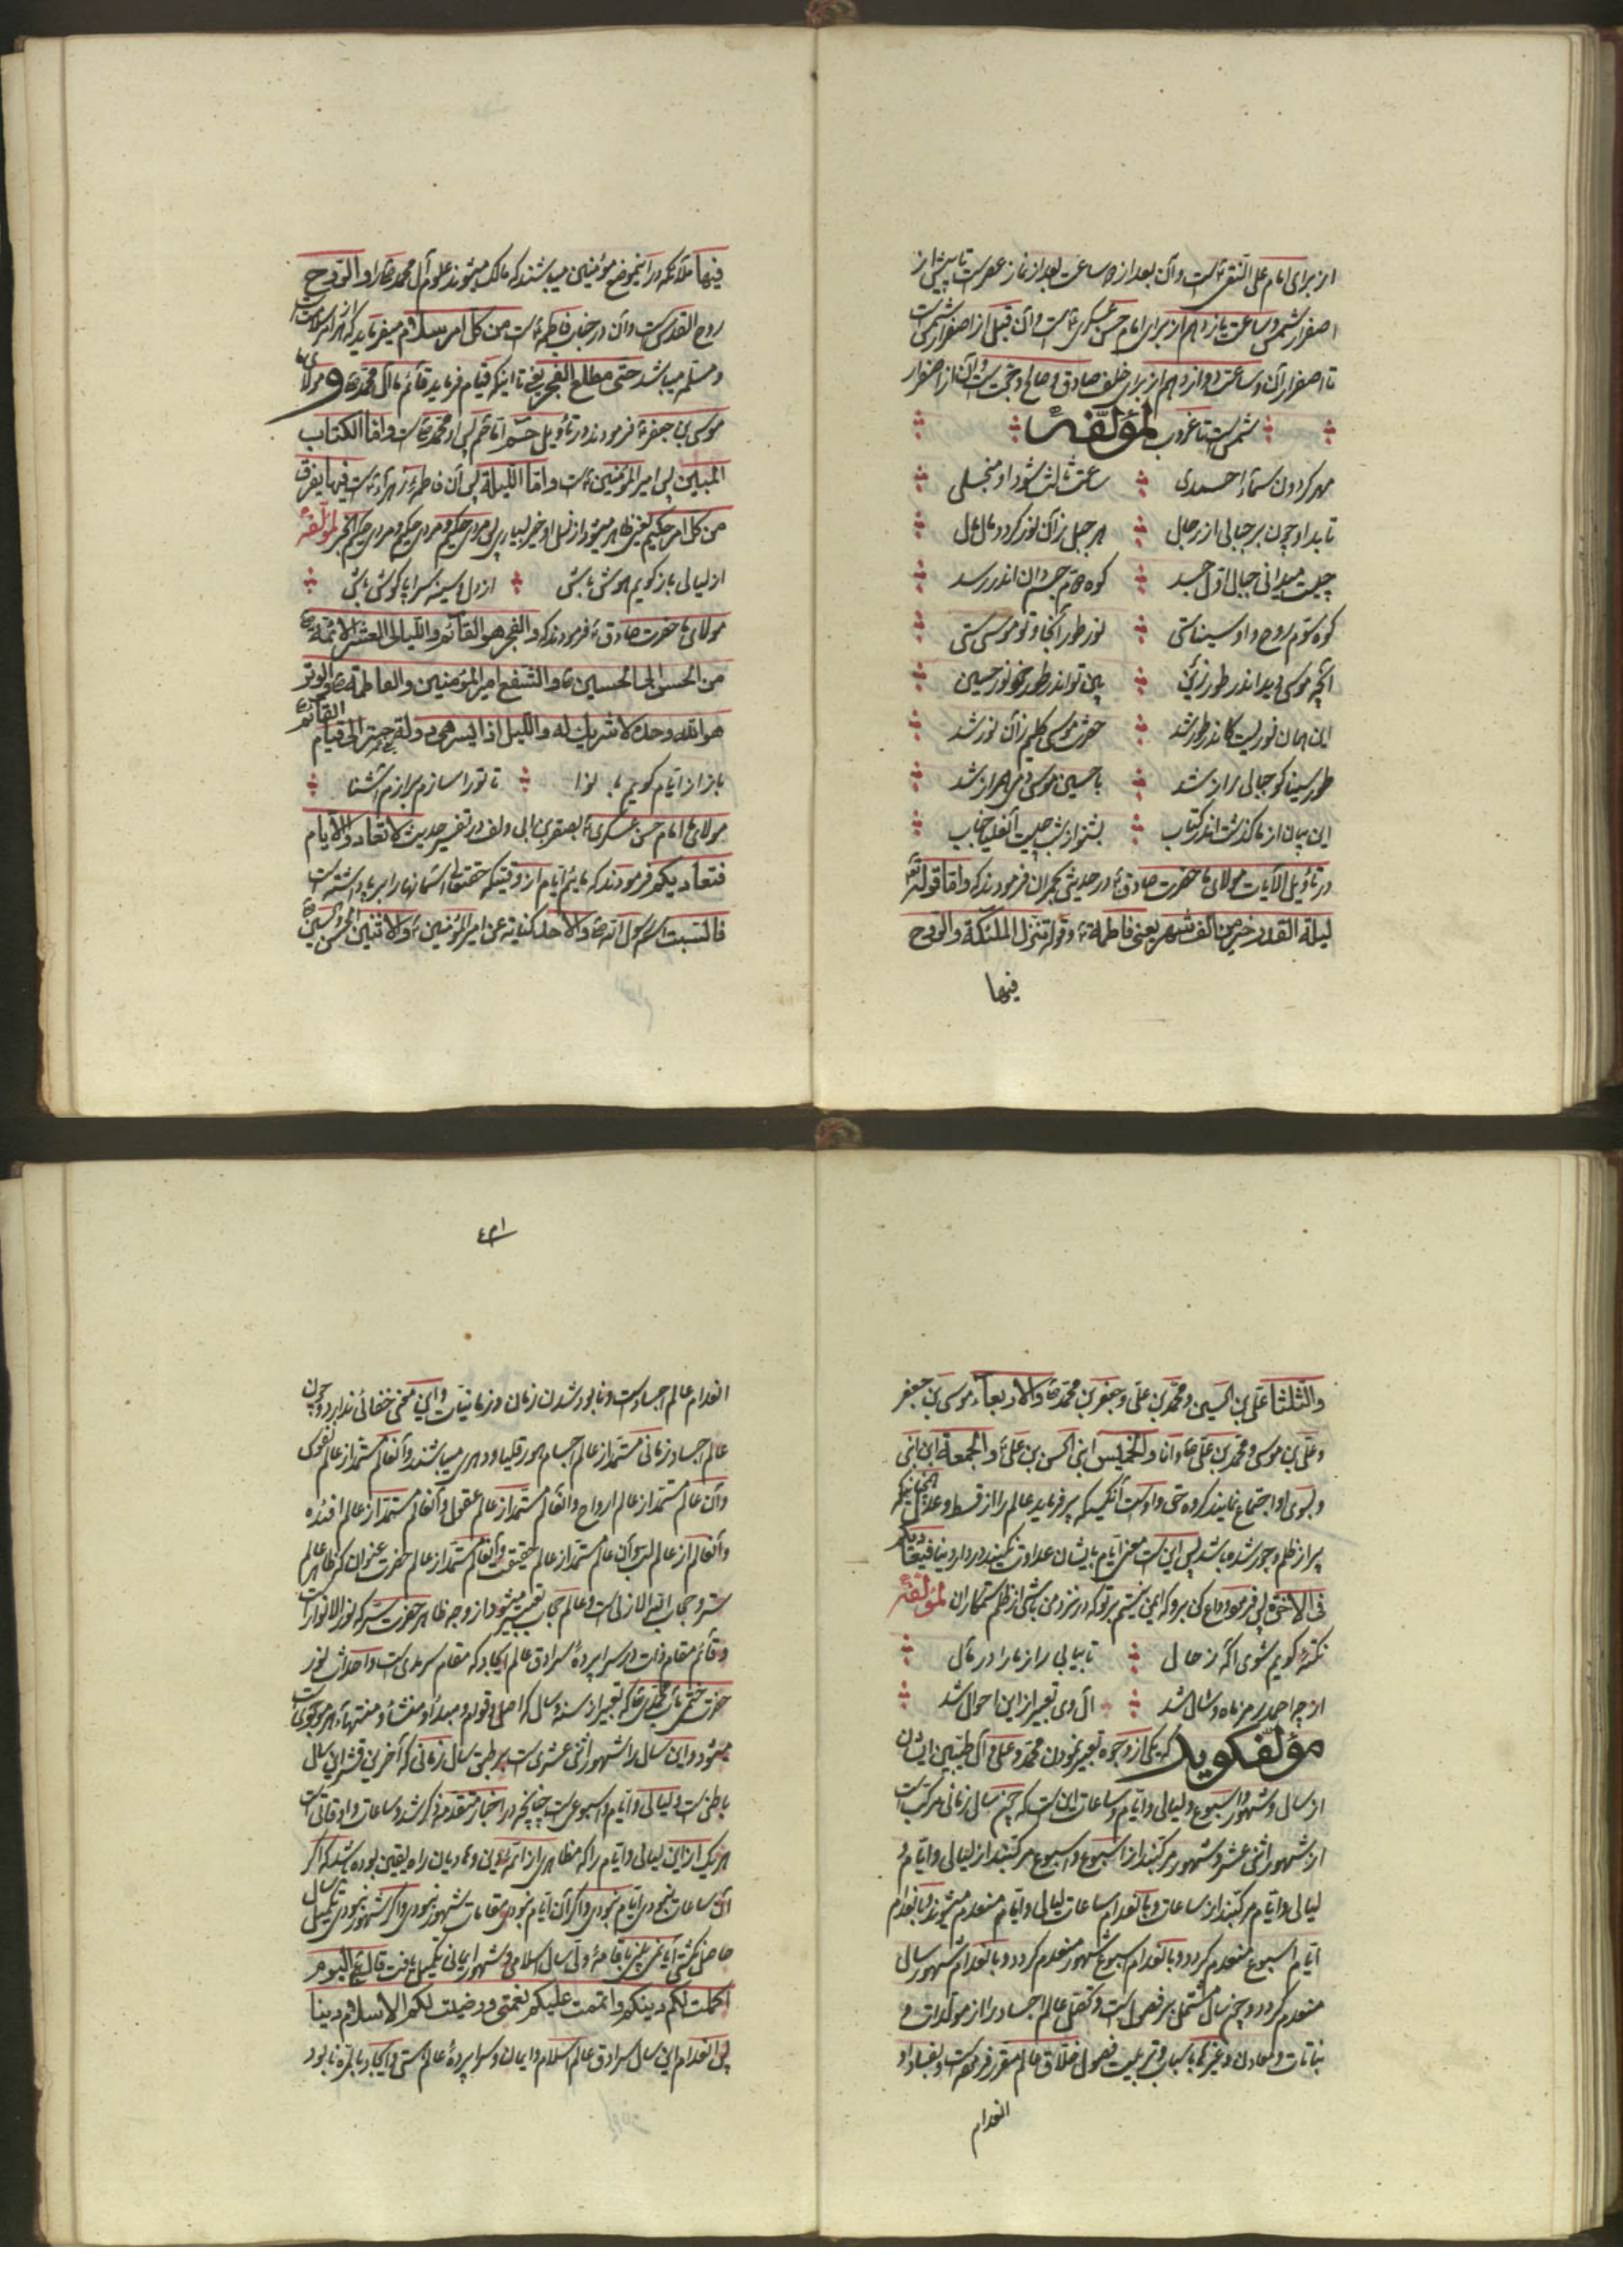 از برای امام علی النقی ع است و آن بعد از دو ساعت بعد از نماز عصر است تا پیش از
اصفرار شمس و ساعت یازدهم از برای امام حسن عسکری ع است و آن قبل از اصفرار شمس است
تا اصفرار آن و ساعت دوازدهم از برای خلف صادق و صالح و حجت است و آن از اصفرار
شمس است تا غروب لمؤلّفه
مهر کردون سماء احمدی ساعت ثالث شود او منجلی
تابد او چون بر جبالی از جبل هر جبل زان نور کردد
چیست میدانی جبالی اول جسد کوه دوم جسم دان اندر رسد
کوه سوم روح و او سیناستی نور طور آنجا و تو موسی ستی
آنچه موسی دید اندر طور زین بین تو اندر طور خود نور حسین
این همان نوریست کاندر طور شد حضرت موسی کلیم زان نور شد
طور سینا کو جبالی راز شد با حسین موسی دمی همراز شد
این بیان از ما گذشت اندر کتاب بشنو از شب چیست آنعالیجناب
در تأویل الآیات مولای ما حضرت صادق ع در حدیثی بحمران فرمودند که و اما قوله تع
لیلة القدر خیر من الف شهر یعنی فاطمة ع و قوله تنزل الملئکة والروح
فیها
فیها ملائکه در اینموضع مؤمنین میباشند که مالک میشوند علوم آل محمد ص را و الروح
روح القدس است و آن در جناب فاطمه ع است من کل امر سلام میفرماید که هر امر سلامت است
و مسلم میباشد حتی مطلع الفجر یعنی تا اینکه قیام فرماید قائم ما آل محمد ص و مولای ما
موسی بن جعفر ع فرمودند در تأویل حم اما حم پس او محمد ص است و اما الکتاب
المبین پس امیر المؤمنین ع است و اما اللیلة پس آن فاطمه زهراء ع است فیها یفرق
من کل امر حکیم یعنی ظاهر میشود از نسل او خیر بسیار پس مردی حکیم و مردی حکیم و مردی حکیم الخبر لمؤلفه
از لیالی باز گویم هوش باش از دل و سینه سراپا گوش باش
مولای ما حضرت صادق ع فرمودند که و الفجر هو القائم و اللیالی العشر الائمة ع
من الحسن الی الحسین ع و الشفع امیر المؤمنین و الفاطمة ع و الوتر
هو الله وحده لا شریک له و اللیل اذا یسر هی دولة حبتر الی قیام القائم ع
باز از ایام گویم با نوا تا تو را سازم براز م آشنا
مولای ما امام حسن عسکری ع بصقر بن ابی دلف در تفسیر حدیث لا تعادوا الایام
فتعادیکم فرمودند که مائیم ایام از وقتیکه حقتعالی آسمانها را برپا داشته است
فالسبت اسم رسول الله ص و الاحد کنایة عن امیر المؤمنین ع و الاثنین الحسن و الحسین ع
و الثلثا علی بن الحسین و محمد بن علی و جعفر بن محمد ع و الاربعاء موسی بن جعفر
و علی بن موسی و محمد بن علی ع و انا و الخمیس ابنی الحسن بن علی ع و الجمعة ابن ابنی
و بسوی او اجتماع نمایند گروه حق و اوست آنکسیکه پر فرماید عالم را از قسط و عدل همچنانکه
پر از ظلم و جور شده باشد پس این است معنی ایام با ایشان عداوت نکنید در دار دنیا فیعادیکم
فی الآخرة پس فرمود وداع کن برو که ایمن نیستم بر تو که در نزد من باشی از ظلم ستمکاران لمؤلفه
نکتهٔ گویم شوی آگه ز حال تا بیابی راز ما را در مآل
از چه احمد رمز ماه و سال شد آل وی تعبیر از این احوال شد
مؤلف گوید که یکی از وجوه تعبیر نمودن محمد و علی و آل طیبین ایشان
از سال و شهور و اسبوع و لیالی و ایام و ساعات این است که چون سال زمانی مرکب است
از شهور اثنی عشر و شهور مرکبند از اسبوع و اسبوع مرکبند از لیالی و ایام و
لیالی و ایام مرکبند از ساعات و بانعدام ساعات لیالی و ایام منعدم میشوند و بانعدام
ایام اسبوع منعدم گردد و بانعدام اسبوع شهور منعدم گردد و بانعدام شهور سال
منعدم گردد و چون سال مشتمل بر فصول است و تعقل عالم اجساد را از مولدات و
نباتات و معادن و غیرها باسباب و تربیت فصول خلاق عالم مقرر فرموده است و بفساد او
انعدام
۴۳۱
انعدام عالم اجساد است و نابود شدن زمان و زمانیات و این معنی خفائی ندارد و چون
عالم اجساد زمانی مستمد از عالم اجسام هورقلیاوی میباشند و آنعالم مستمد از عالم نفوس
و آن عالم مستمد از عالم ارواح و آنعالم مستمد از عالم عقول و آنعالم مستمد از عالم افئده
و آنعالم از عالم و آن عالم مستمد از عالم حقیقت و آنعالم مستمد از عالم حضرت عنوان که ظاهر عالم
ستر و حجاب ازلی است و عالم حجاب تعبیر میشود از وجه ظاهر حضرت ستر که نور الانوار است
و قائم مقام ذات در سراپردهٔ سرادق عالم ایجاد که مقام سرمدی است و احداث نور
حضرت ختمی مآب محمدی ص که تعبیر از سنه و سال که اصل و قوام و مبدأ و منشأ و منتهاء هر موجودی است
میشود و این سال را شهور اثنی عشری است بر طبق سال زمانی که آخرین قشر این سال
باطنی است و لیالی و ایام و اسبوعی است چنانچه در اخبار متقدمه ذکر شد و ساعات و اوقاتی است
هر یک از این لیالی و ایام را که مظاهری از ائمه دین و هادیان راه یقین بوده باشد که اگر
آن ساعات نبودی ایام نبودی و اگر آن ایام نبودی مقامات شهور نبودی و اگر شهور نبودی تکمیل سال
حاصل نگشتی و آن سال اسلامی و شهور ایمانی تکمیل یافت قال تع الیوم
اکملت لکم دینکم و اتممت علیکم نعمتی و رضیت لکم الاسلام دینا
پس انعدام این سال سرادق عالم اسلام و ایمان و سراپردهٔ عالم هستی و ایجاد بالمره نابود